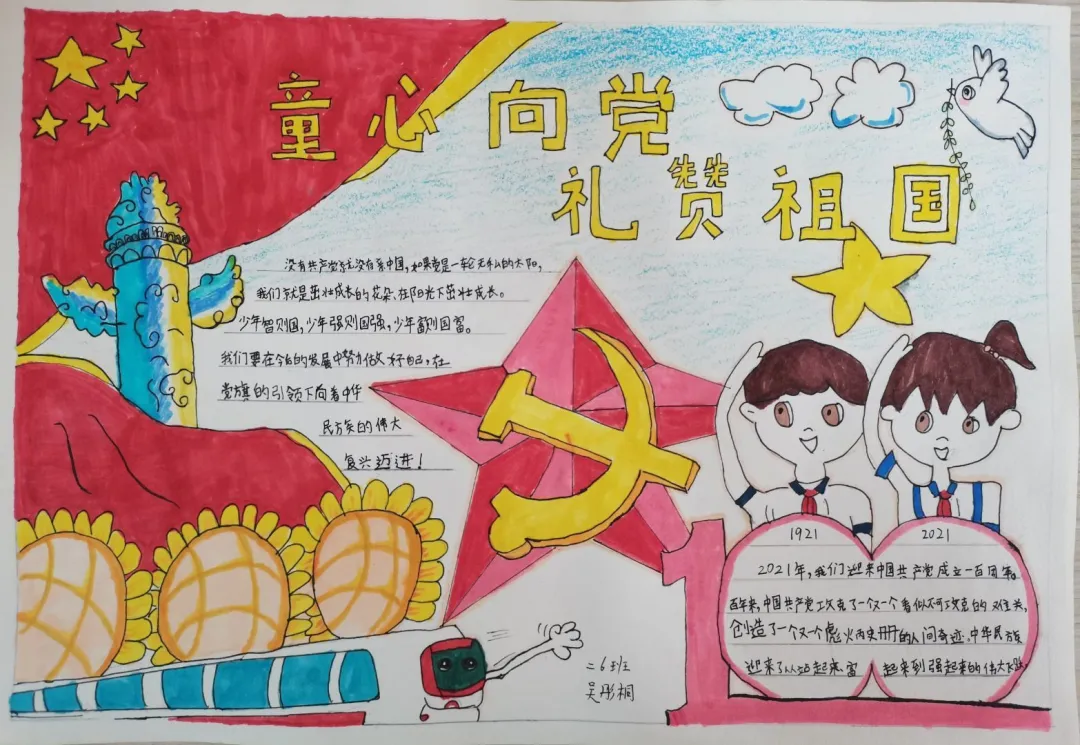 童心向党
礼赞祖国
没有共产党就没有新中国,如果党是一轮无私的太阳,
我们就是茁壮成长的花朵、在阳光下茁壮成长。
少年智则国,少年强则国强,少年富则国富。
我们要在今后的发展中努力做好自己,在
党旗的引领下向着中华
民族的伟大
复兴迈进!
1921
2021
2021年,我们迎来中国共产党成立一百周年。
百年来,中国共产党攻克了一个又一个看似不可攻克的难关,
创造了一个又一个彪炳史册的人间奇迹,中华民族
迎来了从站起来、富起来到强起来的伟大飞跃
二6班
吴彤桐